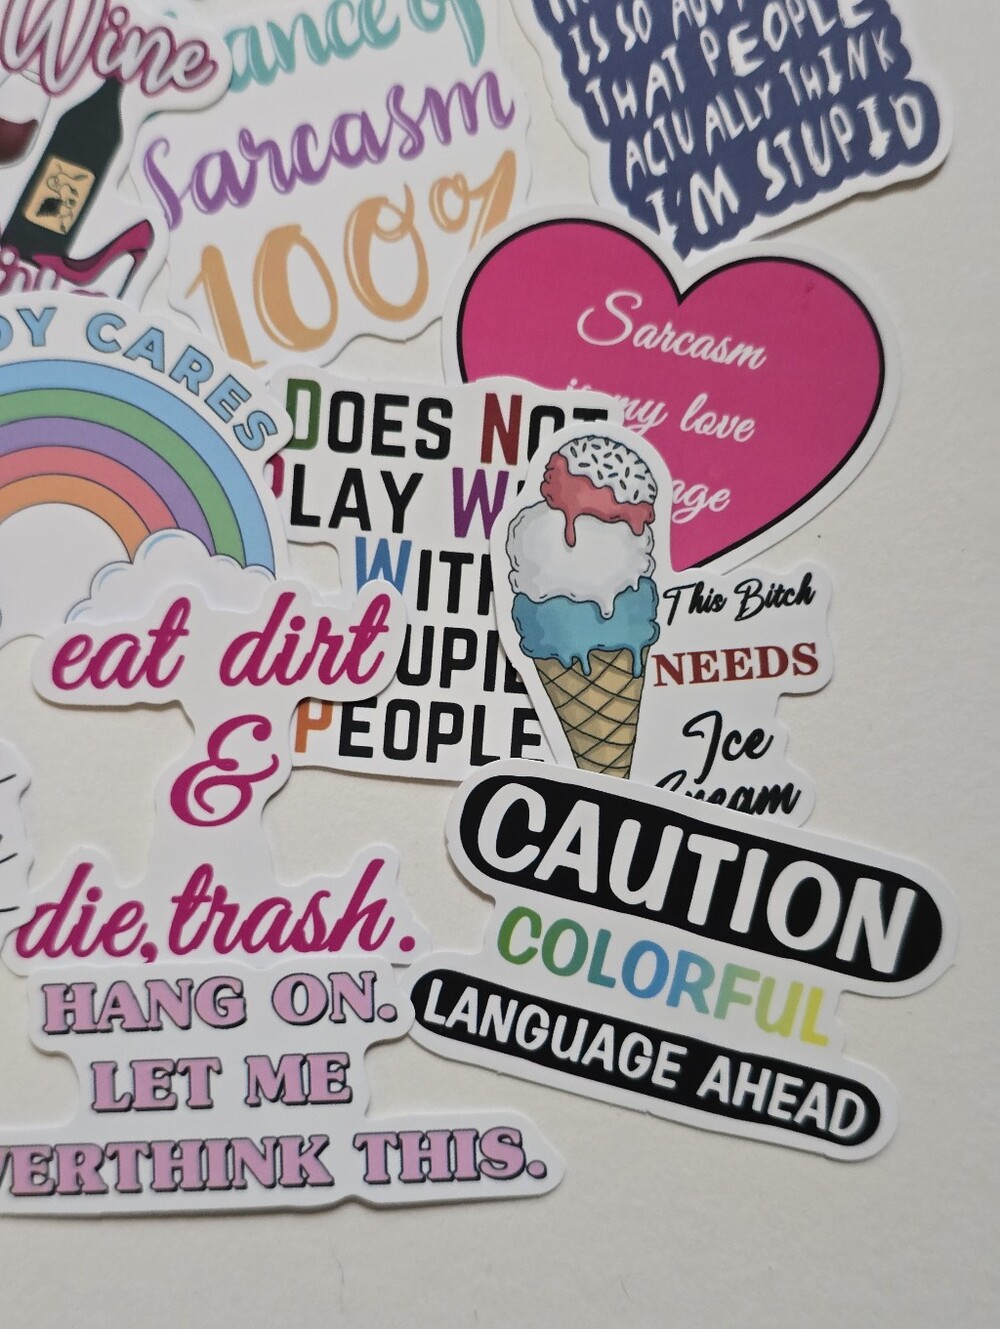 Wine
ance of
Sarcasm
100%
IS SO
THAT PEOPLE
ACTUALLY THINK
I'M STUPID
DY CARES
Sarcasm
is my love
age
DOES NOT
PLAY W
WITH
UPID
PEOPLE
This Bitch
NEEDS
Ice
Cream
eat dirt
&
die, trash.
CAUTION
COLORFUL
LANGUAGE AHEAD
HANG ON.
LET ME
VERTHINK THIS.